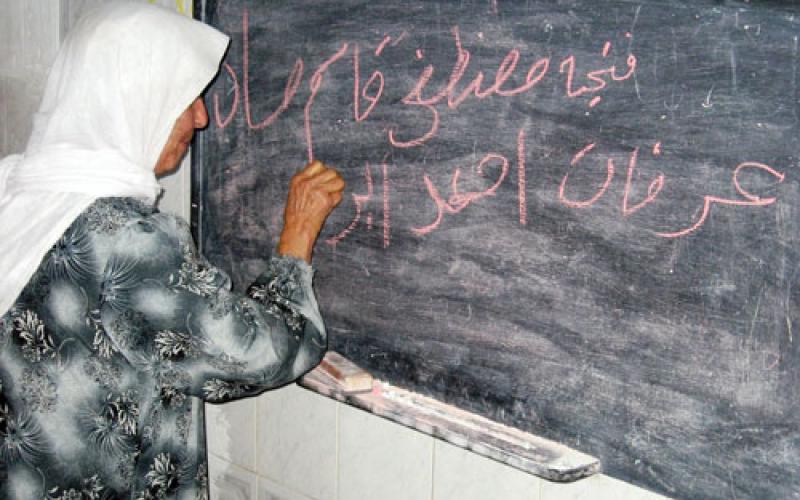 فتحيه مصطفى قاسم
عرفات احمد ابر